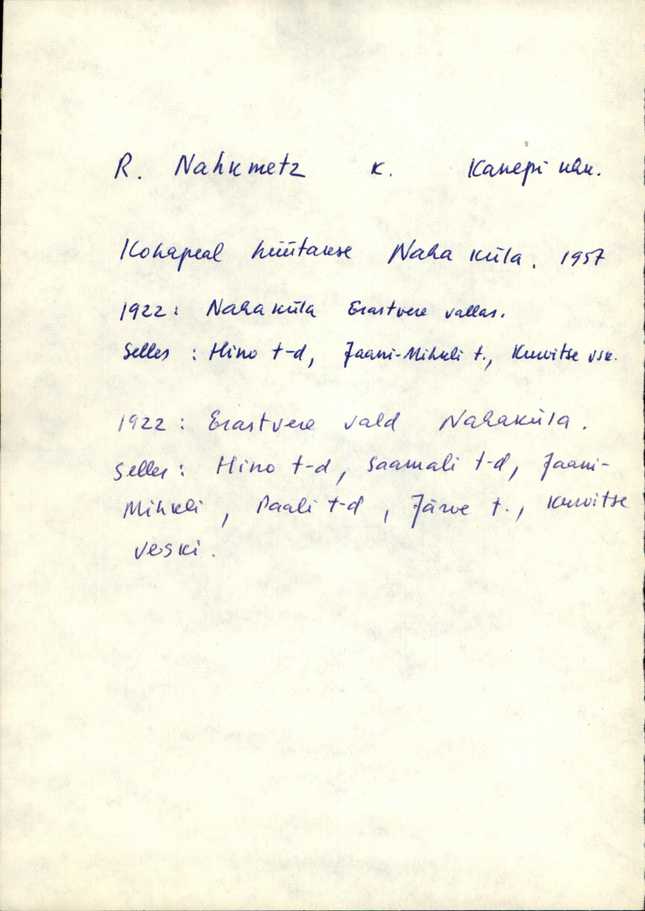 R. Nahkmetz k. Kanepi khk.
Kohapeal hüütakse Naha küla. 1957
1922: Nahaküla Erastvere vallas.
Selles : Hino t-d, Jaani-Mihkli t., Kurvitse vsk.
1922: Erastvere vald Nahaküla.
Selles: Hino t-d, Saamali t-d, Jaani-
Mihkli, Paali t-d, Järve t., Kurvitse
veski.